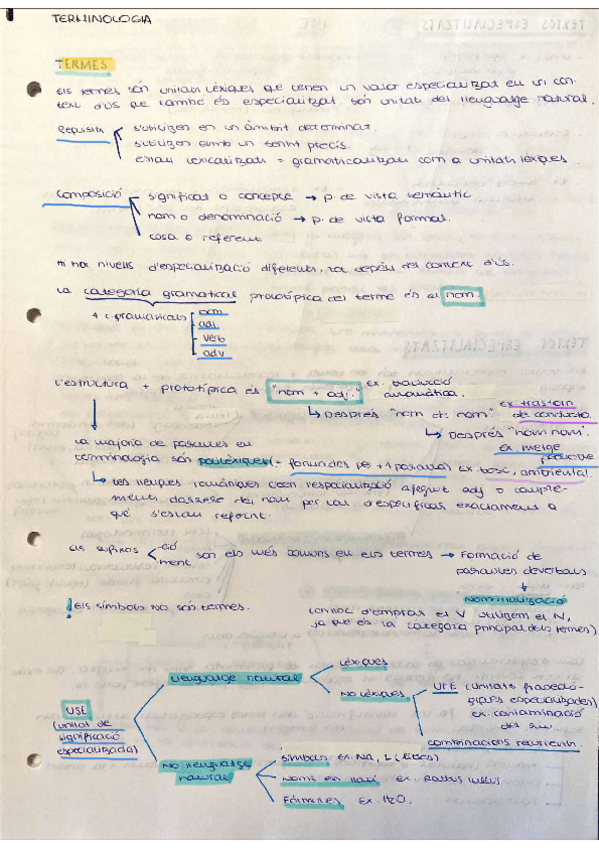 TERMINOLOGIA
TERMES
Els termes són unitats lèxiques que tenen un valor especialitzat en un con-
text d'ús que també és especialitzat. Són unitats del llenguatge natural.
Requisits
s'utilitzen en un àmbit determinat.
s'utilitzen amb un sentit precís.
estan lexicalitzats = gramaticalitzats com a unitats lèxiques.
Composició
significat o concepte → p. de vista semàntic
nom o denominació → p. de vista formal.
cosa o referent
Hi ha nivells d'especialització diferents, tot depèn del context d'ús.
La categoria gramatical prototípica del terme és el nom.
4 c. gramaticals
nom
adj.
verb
adv
L'estructura + prototípica és "nom + adj." ex. traducció
automàtica.
↳ Després "nom de nom" ex. trastorn
de conducta.
↳ Després "nom nom".
ex. metge
La majoria de paraules en
terminologia són polilèxiques (= formades per +1 paraula) Ex. bosc, ambiental.
↳ Les llengües romàniques creen l'especialització afegint adj o comple-
ments darrere del nom per tal d'especificar exactament a
què s'estan referint.
Els sufixos
-ció
-ment
són els més comuns en els termes → Formació de
paraules deverbals
Nominalització
! Els símbols no són termes.
(enlloc d'emprar el V utilitzem el N,
ja que és la categoria principal dels termes)
USE
(unitat de
significació
especialitzada)
Llenguatge natural
Lèxiques
No lèxiques
UFE (Unitats fraseolò-
giques especialitzades)
ex. contaminació
del
combinacions recurrents.
No llenguatge
natural
Símbols ex. Na, L (litres)
Noms en llatí ex. Rattus
Fórmules Ex. H2O.